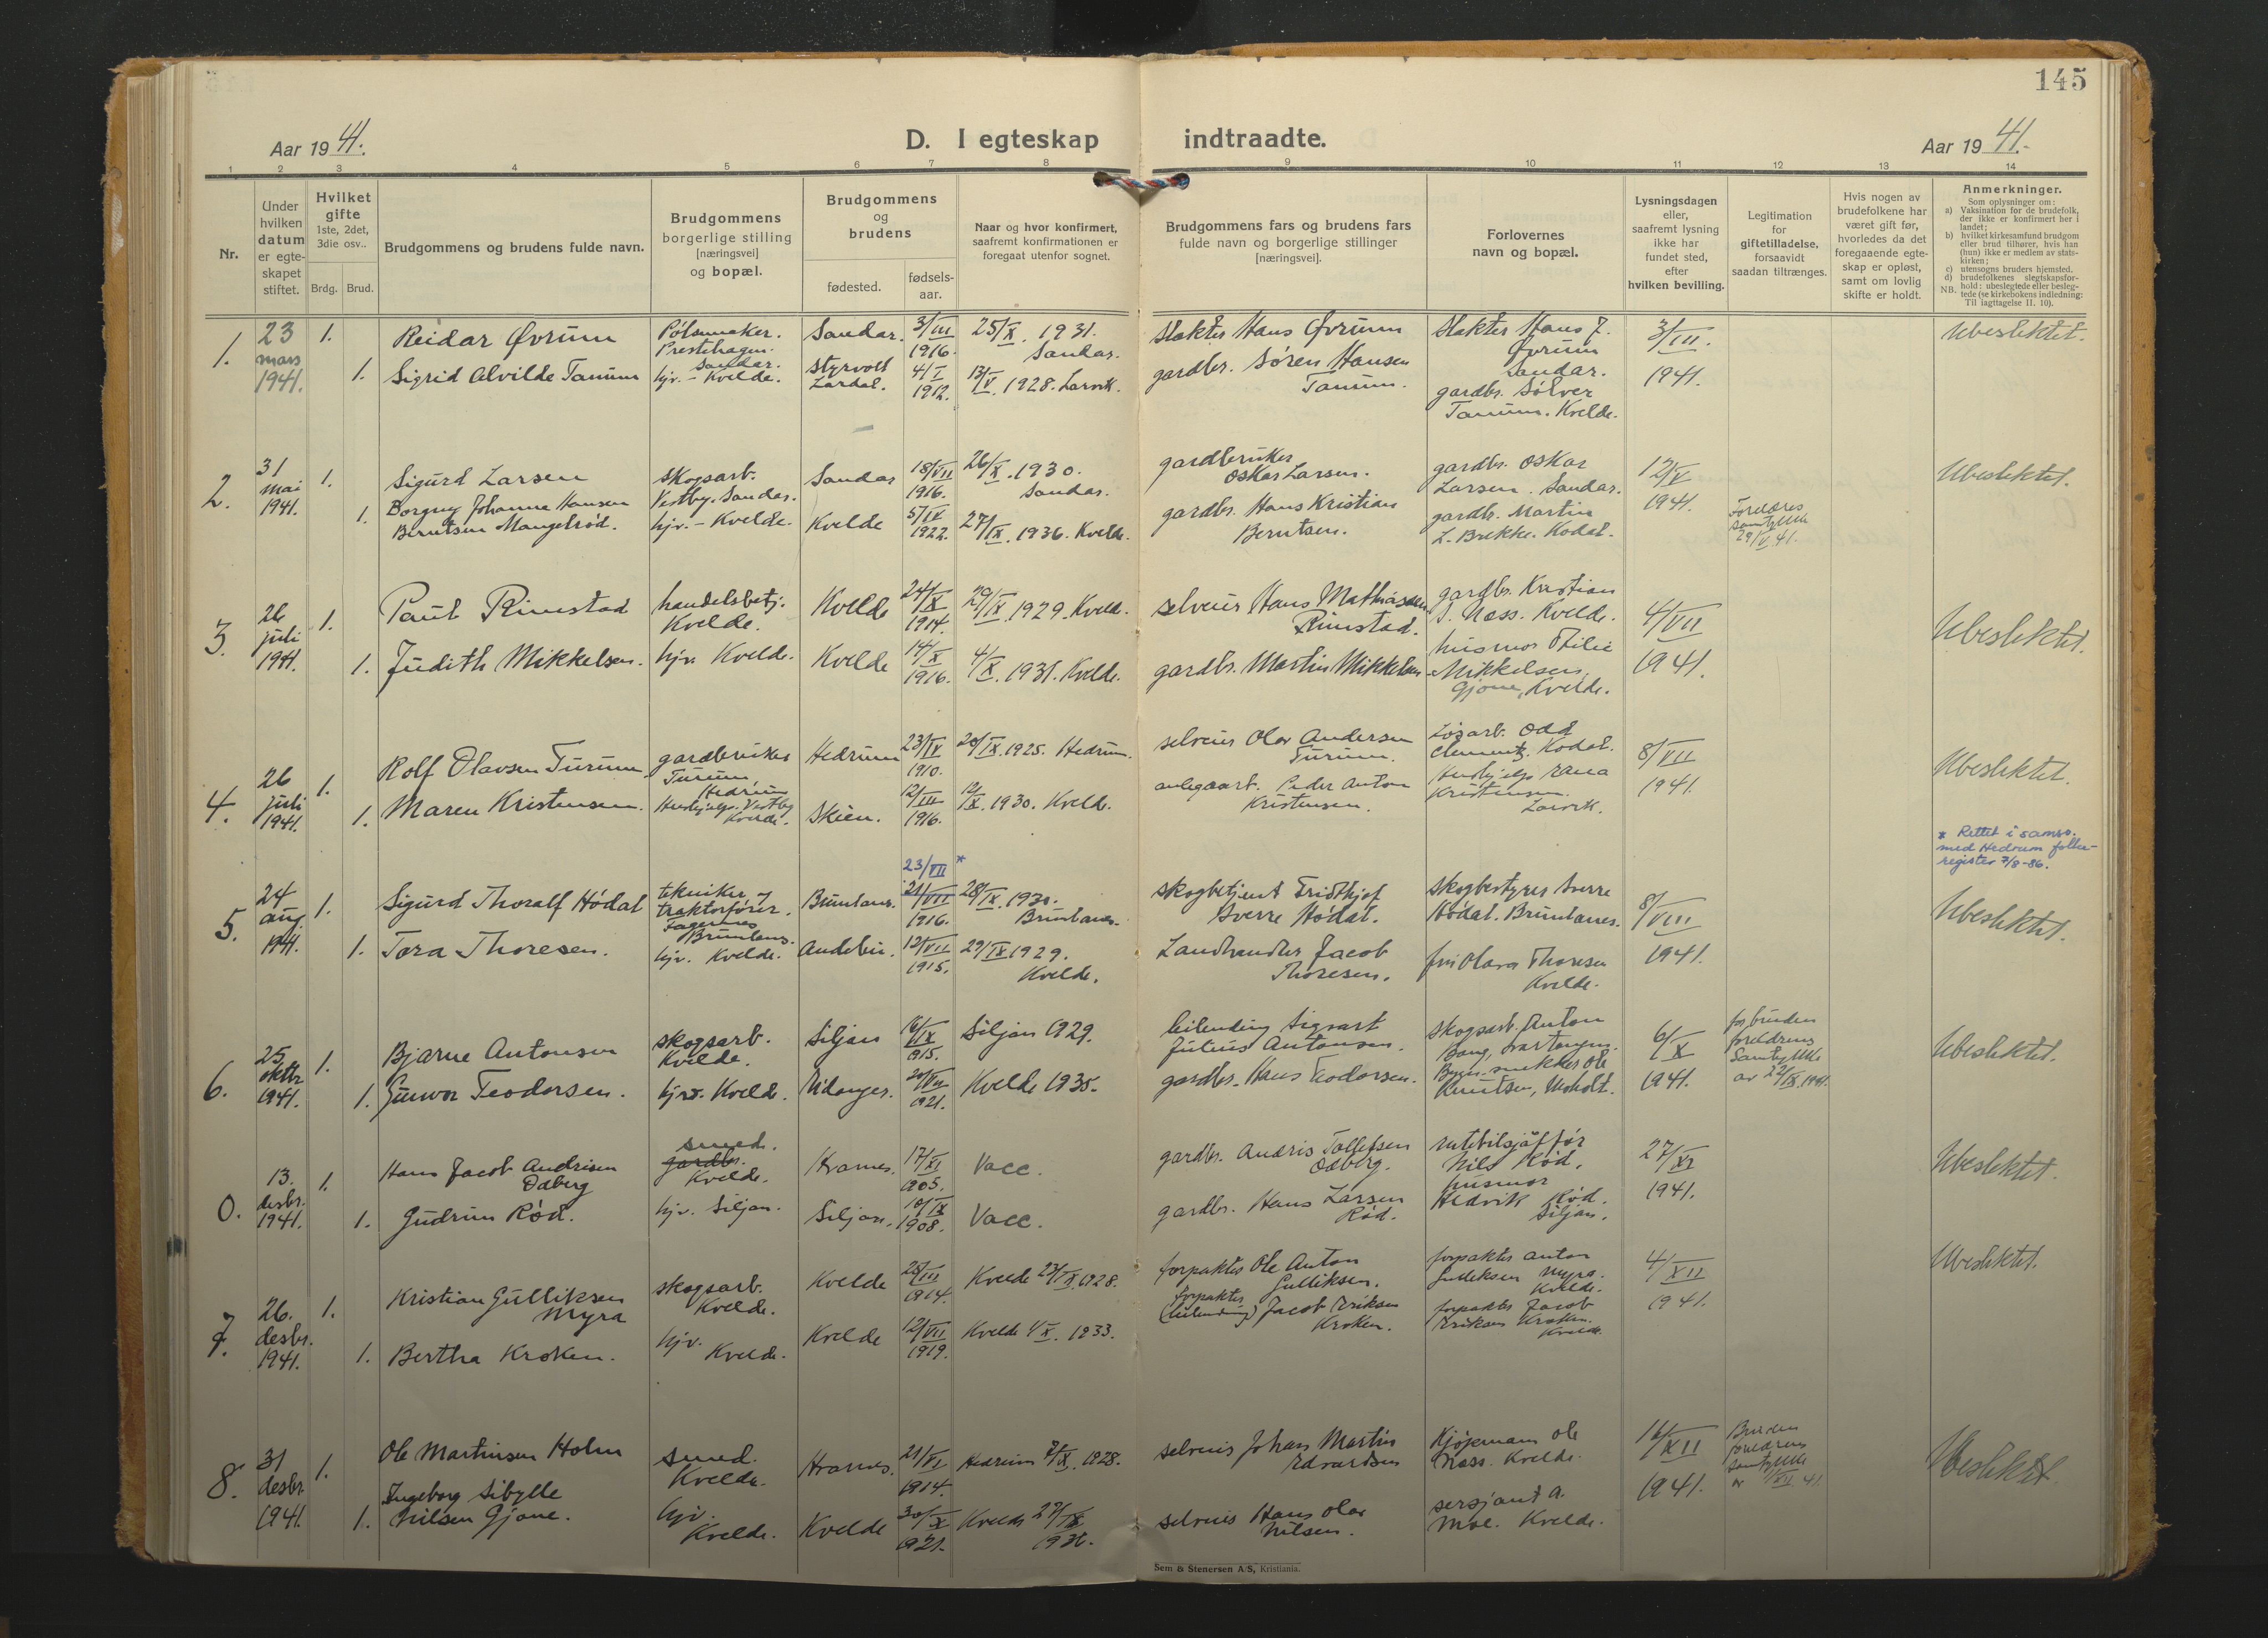 145
Aar 1941.
D. I egteskap indtraadte.
Aar 1941.
1 2 3 4 5 6 7 8 9 10 11 12 13 14
Nr.
Under hvilken datum er egteskapet stiftet.
Hvilket gifte 1ste, 2det, 3die osv..
Brdg. Brud.
Brudgommens og brudens fulde navn.
Brudgommens borgerlige stilling [næringsvei] og bopæl.
Brudgommens og brudens
fødested.
fødsels-aar.
Naar og hvor konfirmert, saafremt konfirmationen er foregaat utenfor sognet.
Brudgommens fars og brudens fars fulde navn og borgerlige stillinger [næringsvei].
Forlovernes navn og bopæl.
Lysningsdagen eller, saafremt lysning ikke har fundet sted, efter hvilken bevilling.
Legitimation for giftetilladelse, forsaavidt saadan tiltrænges.
Hvis nogen av brudefolkene har været gift før, hvorledes da det foregaaende egteskap er opløst, samt om lovlig skifte er holdt.
Anmerkninger.
Som oplysninger om:
a) Vaksination før de brudefolk, der ikke er konfirmert her i landet;
b) hvilket kirkesamfund brudgom eller brud tilhører, hvis han (hun) ikke er medlem av statskirken;
c) utensogns bruders hjemsted.
d) brudefolkenes slegtskapsforhold: ubeslegtede eller beslegtede (se kirkebokens indledning:
NB. Til iagttagelse II. 10).
1. 23 mars 1941. 1. Reidar Øvrum Pølsemaker. Prestehagen. Sandar. Sandar. 3/III 1916. 25/X. 1931. Sandar. slakter Hans Øvrum slakter Hans J. Øvrum Sandar. 3/III. 1941. Ubeslektet.
1. Sigrid Alvilde Tanum hjv. - Kvelde. Styrvolt Lardal. 4/I 1912. 13/V. 1928. Larvik. gardbr. Søren Hansen Tanum. gardbr. Sølver Tanum. Kvelde.
2. 31 mai 1941. 1. Sigurd Larsen skogsarb. Vestby. Sandar. Sandar 18/VII 1916. 26/X. 1930. Sandar. gardbruker Oskar Larsen. gardbr. Oskar Larsen. Sandar. 12/V 1941. Ubeslektet.
1. Borgny Johanne Hansen Berntsen Mangelrød. hjv. - Kvelde. Kvelde 5/IV 1922. 27/IX. 1936. Kvelde. gardbr. Hans Kristian Berntsen. gardbr. Martin L. Brekke. Kodal. Foreldres samtykke 29/V 41.
3. 26 juli 1941. 1. Paul Rimstad handelsbetj. Kvelde. Kvelde 24/X 1914. 29/IX. 1929. Kvelde. selveier Hans Mathiassen Rimstad. gardbr. Kristian J. Næss. Kvelde. 4/VII 1941. Ubeslektet.
1. Judith Mikkelsen. hjv. Kvelde. Kvelde 14/X 1916. 4/X. 1931. Kvelde. gardbr. Martin Mikkelsen husmor Thilie Mikkelsen, Gjone, Kvelde.
4. 26 juli 1941. 1. Rolf Olavsen Turum gardbruker Turum, Hedrum Hedrum 23/IV 1910. 20/IX. 1925. Hedrum. selveier Olav Andersen Turum. Løsarb. Odd Clementz. Kodal. 8/VII 1941. Ubeslektet.
1. Maren Kristensen. Hushjelp. Vestby Kvelde. Skien. 12/III 1916. 12/X. 1930. Kvelde. anlegsarb. Peder Anton Kristensen. Hushjelp Kristensen. Larvik.
* Rettet i samsv. med Hedrum folkeregister 7/8-86.
5. 24 aug. 1941. 1. Sigurd Thoralf Hødal tekniker, traktorfører. Fagernes Brunlanes. Brunlanes. 23/VII * 21/VII 1916. 28/IX. 1930. Brunlanes. skogbetjent Fridthjof Sverre Hødal. skogbestyrer Sverre Hødal. Brunlanes. 8/VIII 1941. Ubeslektet.
1. Tora Thoresen. hjv. Kvelde. Andebu. 12/VII 1915. 29/IX 1929. Kvelde. Landhandler Jacob Thoresen. fru Olava Thoresen Kvelde.
6. 25 oktbr 1941. 1. Bjarne Antonsen skogsarb. Kvelde. Siljan 16/IX 1915. Siljan 1929. leilending Sigvart Julius Antonsen. skogsarb. Anton Bang, Svartangen. 6/X 1941. for bruden foreldrenes samtykke av 22/IX. 1941. Ubeslektet.
1. Gunvor Teodorsen. hjv. Kvelde. Eidanger. 20/VII 1921. Kvelde 1935. gardbr. Hans Teodorsen. Bygn.snekker Ole Knutsen, Moholt.
0. 13. desbr. 1941. 1. Hans Jacob Andrisen Odberg smed. gardbr. Kvelde. Hvarnes. 17/XI 1905. Vacc. gardbr. Andris Tollefsen Odberg. rutebilsjåffør Nils Rød. 27/XI 1941. Ubeslektet.
1. Gudrun Rød. hjv. Siljan. Siljan. 10/IX 1908. Vacc. gardbr. Hans Larsen Rød. husmor Hedvik Rød. Siljan.
7. 26. desbr. 1941. 1. Kristian Gulliksen Myra skogsarb. Kvelde. Kvelde 25/III 1914. Kvelde 23/IX. 1928. forpakter Ole Anton Gulliksen. forpakter Anton Gulliksen Myra. Kvelde. 4/XII 1941. Ubeslektet.
1. Bertha Kroken. hjv. Kvelde. Kvelde 12/VII 1919. Kvelde 1/X. 1933. forpakter (leilending) Jacob Eriksen Kroken. forpakter Jacob Eriksen Kroken. Kvelde.
8. 31 desbr. 1941. 1. Ole Martinsen Holm smed. Kvelde. Hvarnes. 21/VI 1914. Hedrum 7/X. 1928. selveier Johan Martin Edvardsen Kjøpmann Ole Næss. Kvelde. 16/XII 1941. Bruden foreldrenes samtykke av /XII. 41. Ubeslektet.
1. Ingeborg Sibylle Nilsen Gjone. hjv. Kvelde. Kvelde 30/X 1921. Kvelde 27/IX 1936. selveier Hans Olav Nilsen. sersjant A. Moe. Kvelde.
Sem & Stenersen A/S, Kristiania.